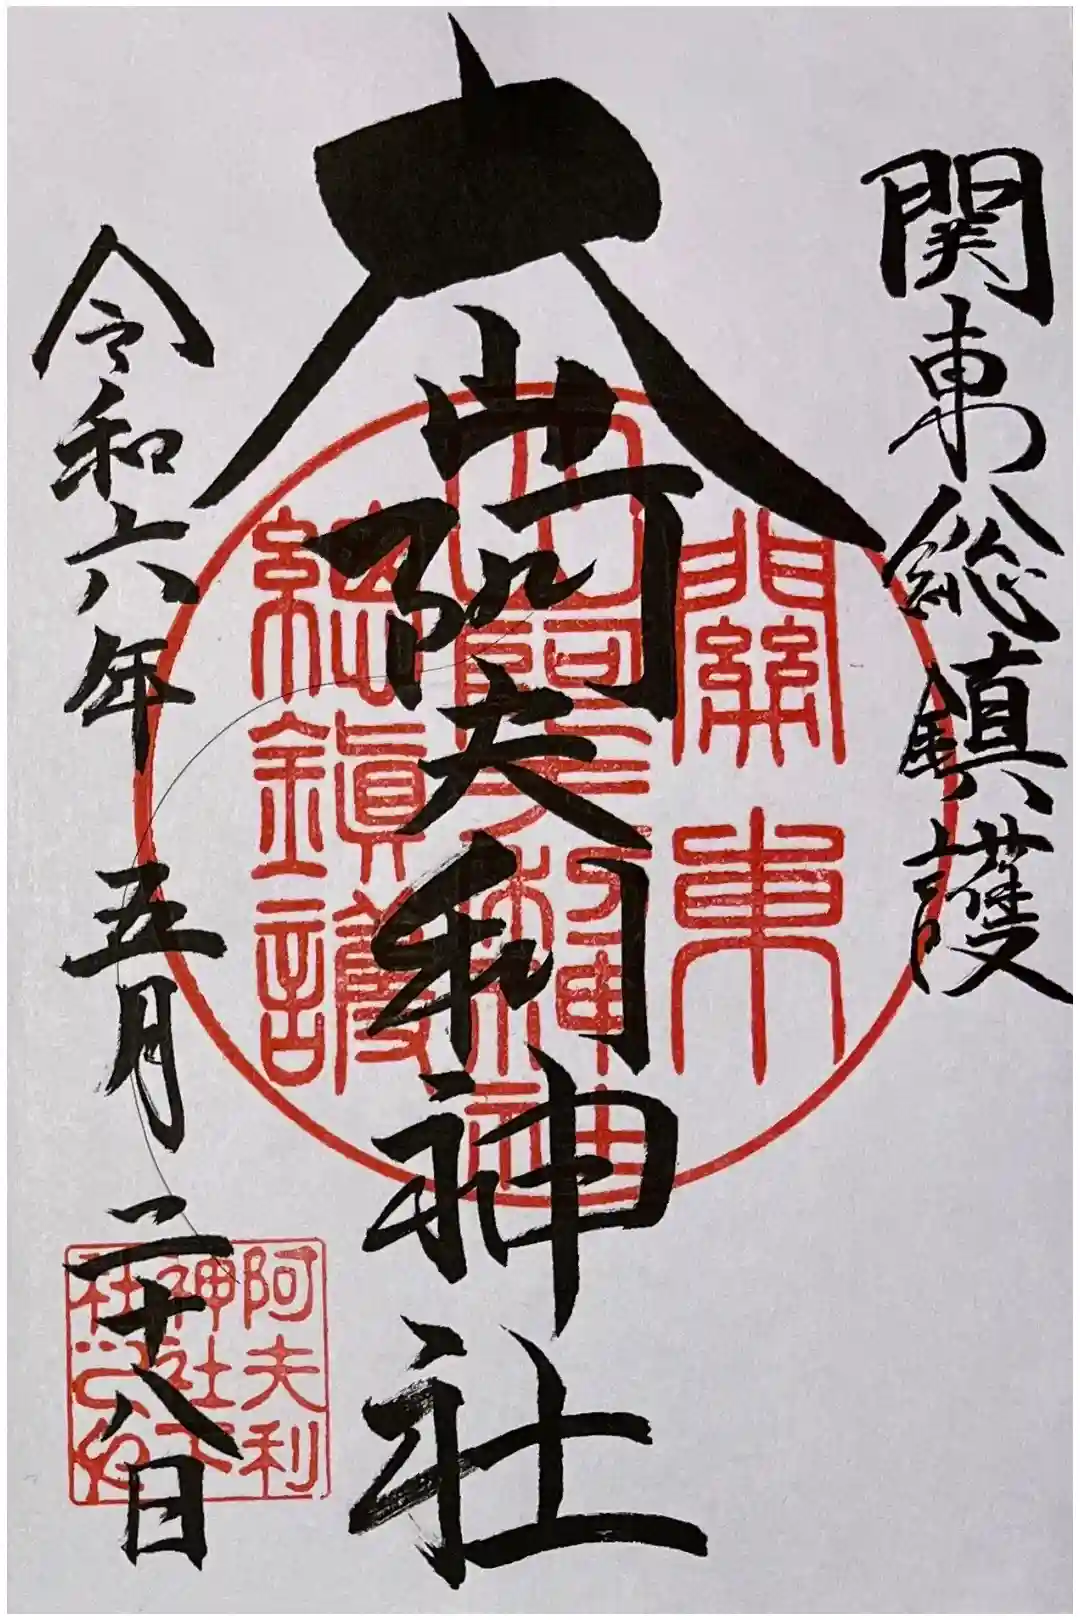 関東総鎮護
大山阿夫利神社
令和六年 五月二十八日
關東
大山阿夫利神社
總鎭護
阿夫利
神社下
社之印